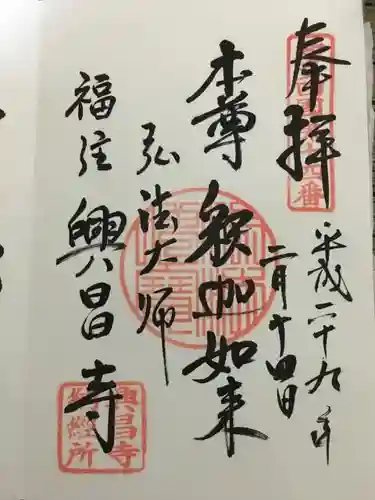 奉拝
平成二十九年
二月十四日
本尊 釈迦如来
弘法大師
福住 興昌寺
興昌寺
納経所